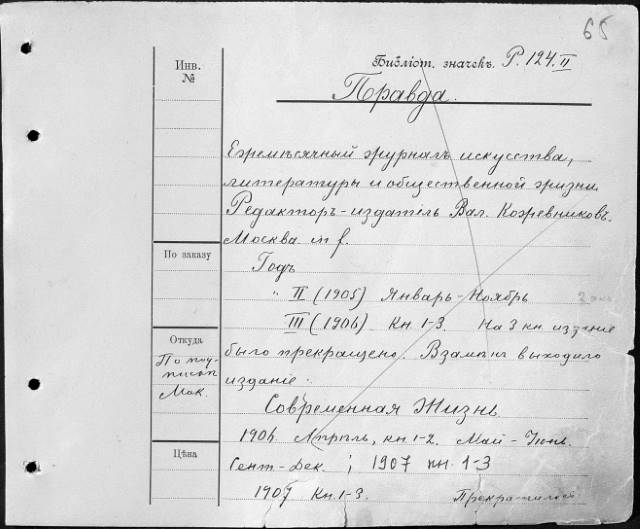 65
Инв. №
Библіот. значекъ. Р. 124.II
Правда.
Ежемѣсячный журналъ искусства,
литературы и общественной жизни.
Редакторъ-издатель Вал. Кожевниковъ.
Москва in f.
По заказу
Годъ
" II (1905) Январь-Ноябрь
III (1906) Кн 1-3. На 3 кн издание
Откуда
было прекращено. Взамѣнъ выходило
По под-
писке
Мак.
издание:
Современная Жизнь
1906 Апрѣль, кн. 1-2. Май - Iюнь.
Цѣна
Сент-Дек. ; 1907 кн. 1-3
1907 Кн. 1-3. Прекратилось